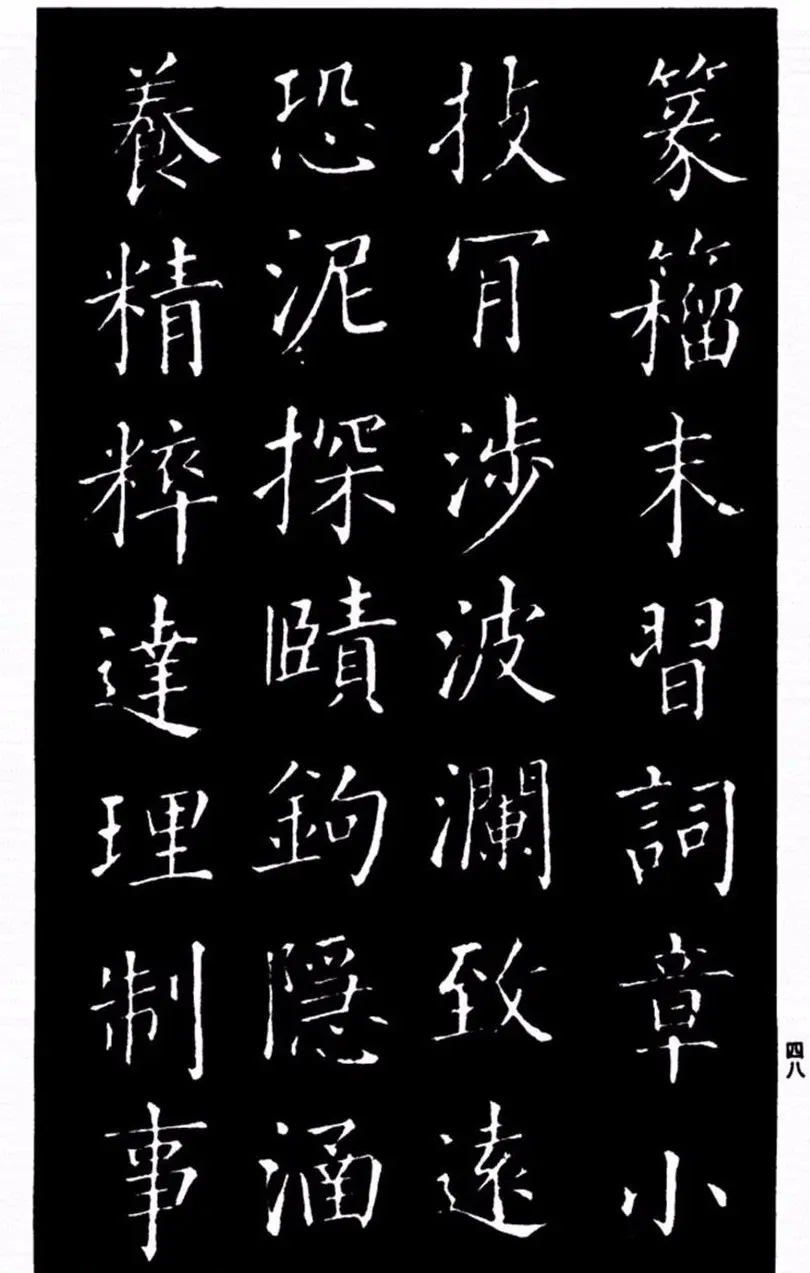 篆籀末習詞章小
技肎涉波瀾致遠
恐泥探賾鉤隱涵
養精粹達理制事
四八